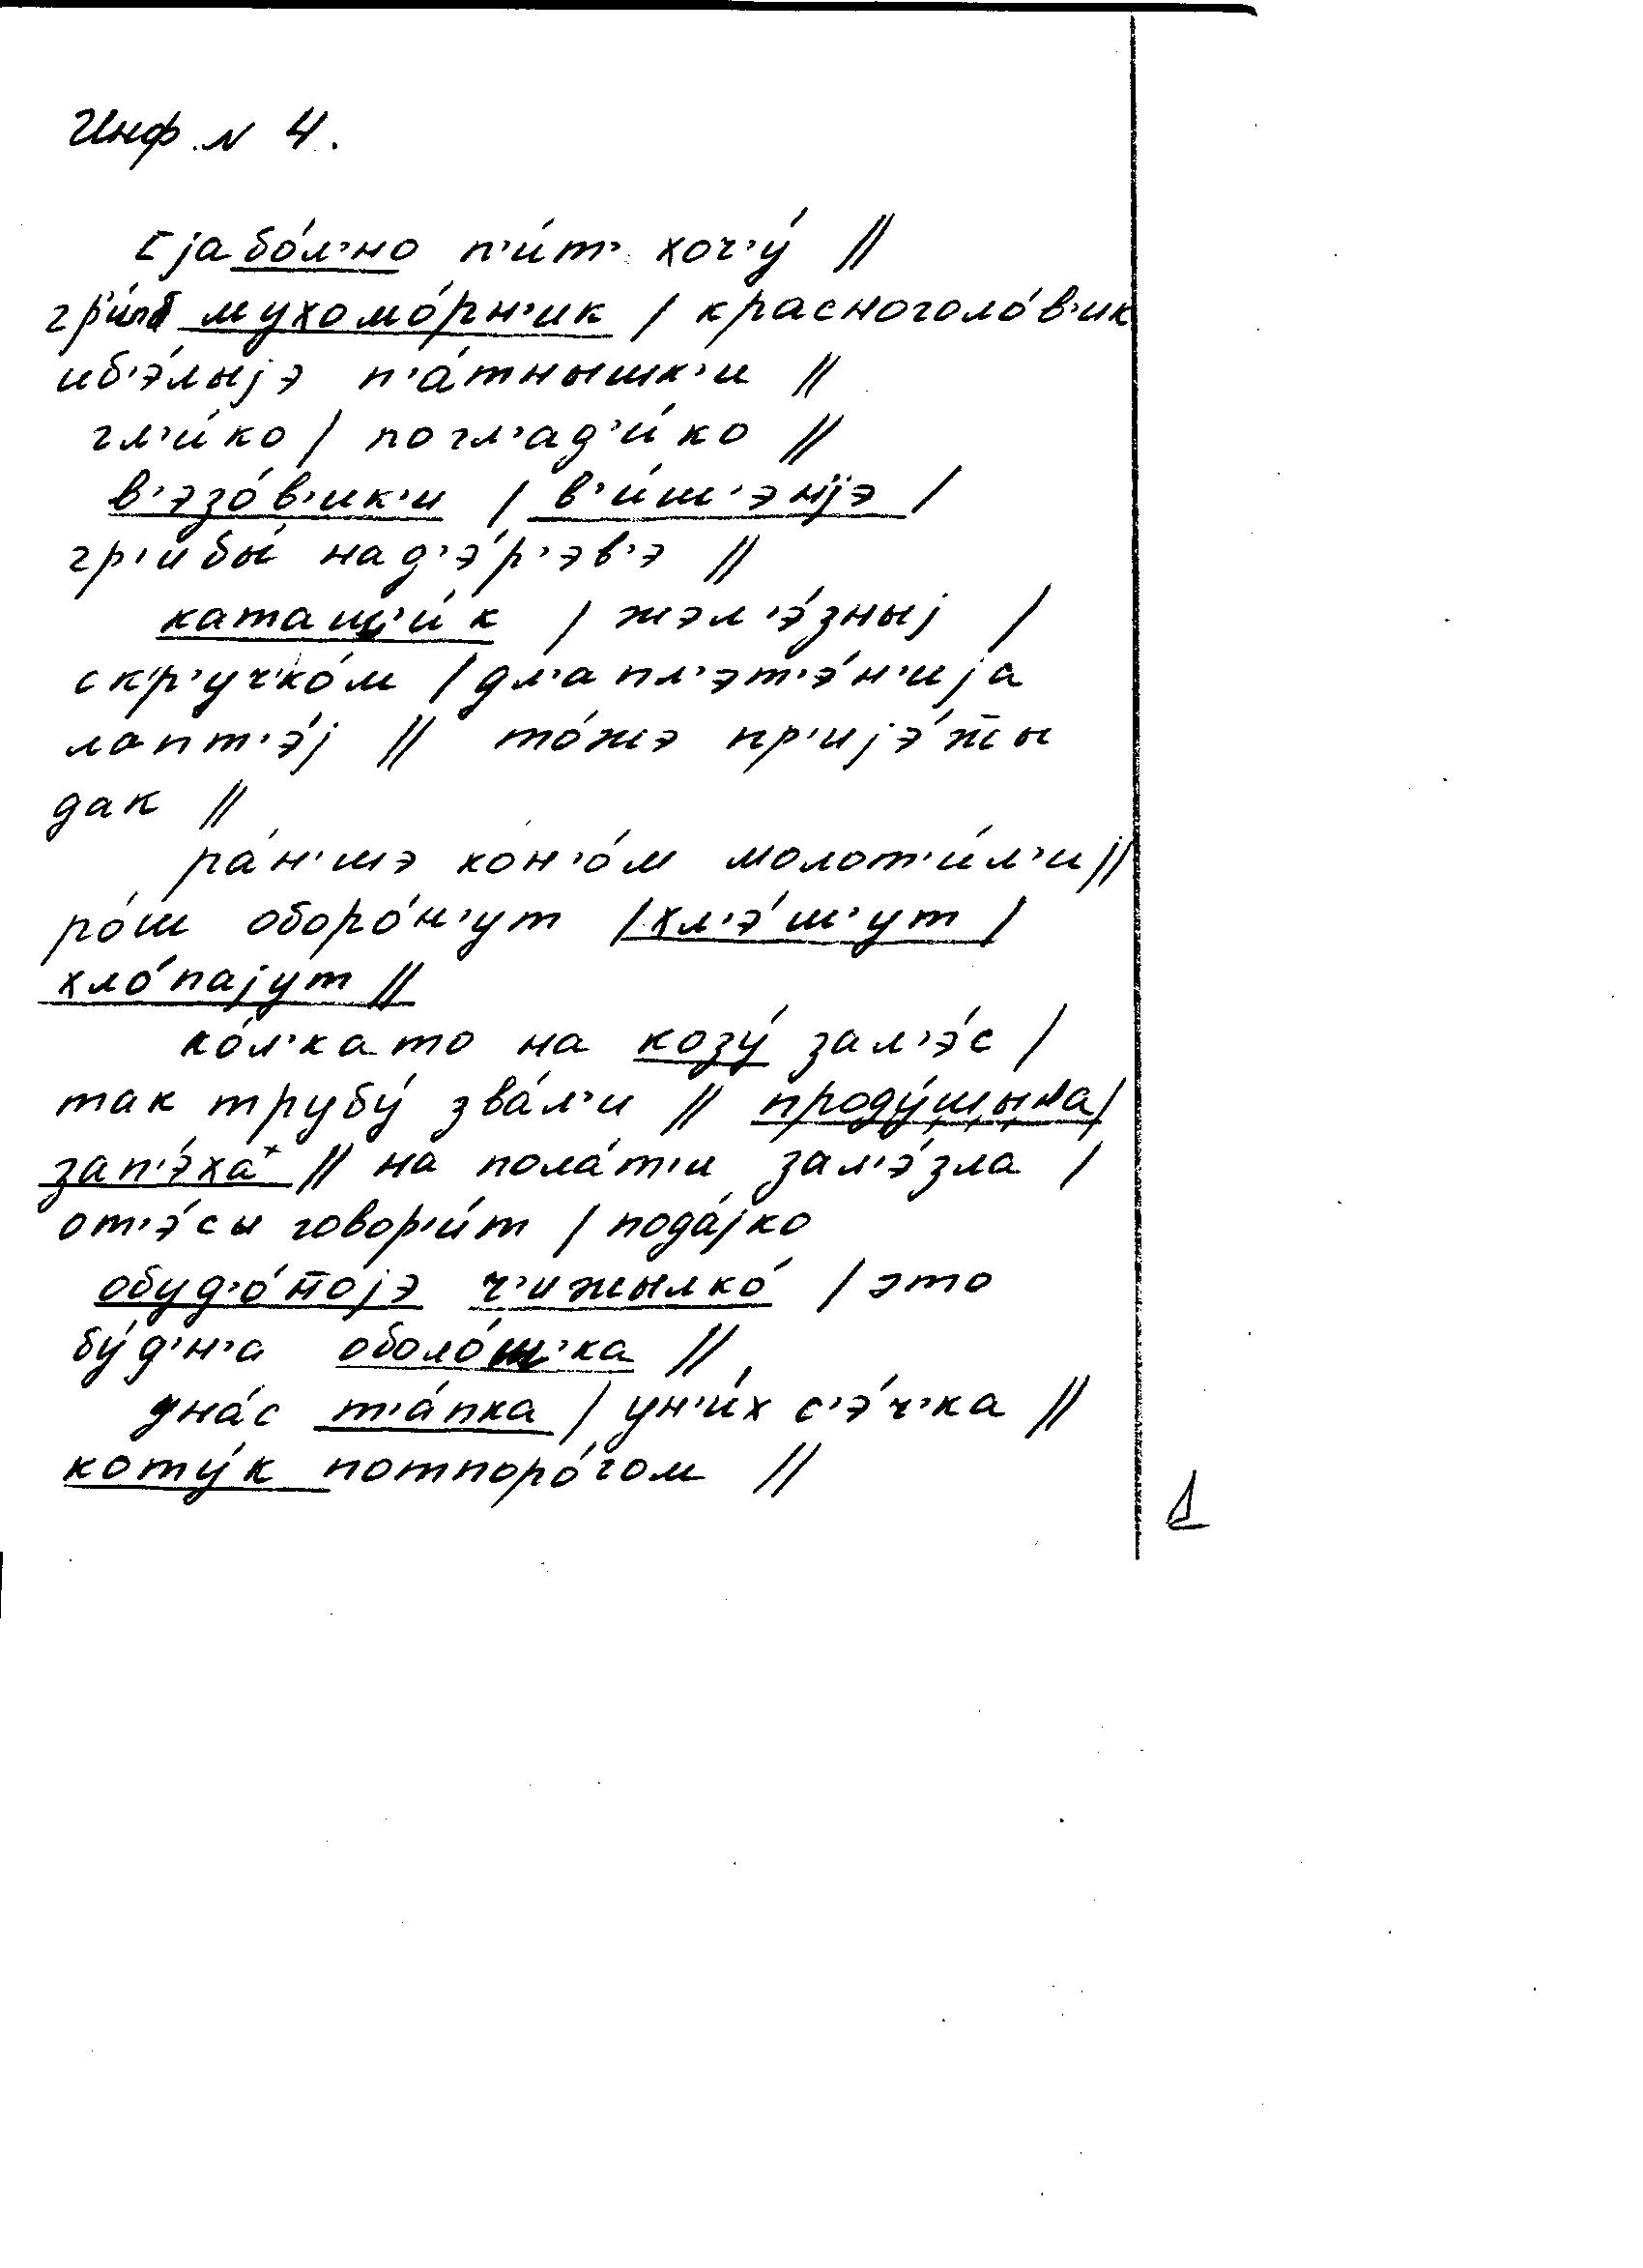 Инф. N 4.
[ја бо́л'но п'и́т' хоч'у́ //
гр'и́б мухомо́рн'ик / красноголо́в'ик
иб'э́лыјэ п'а́тнышк'и //
гл'и́ко / погл'ад'и́ко //
в'эзо́в'ик'и / в'и́ш'энјэ /
гр'ибы́ над'э́р'эв'э //
катащ'и́к / жэл'э́зныј /
скр'уч'ко́м / дл'а пл'эт'э́н'ија
лапт'э́ј // то́жэ пр'ијэ́жты
дак //
ра́н'шэ кон'о́м молот'и́л'и //
ро́ш оборо́н'ут / хл'э́ш'ут /
хло́пајут //
ко́л'като на козу́ зал'э́с /
так трубу́ зва́л'и // проду́шына /
зап'э́ха+ // на пола́т'и зал'э́зла /
от'э́сы говор'и́т / пода́јко
обуд'о́н̄ојэ ч'ижылко́ / это
бу́д'н'а оболо́ш'ка //
уна́с т'а́пка / ун'и́х с'э́ч'ка //
коту́к потпоро́гом //
1